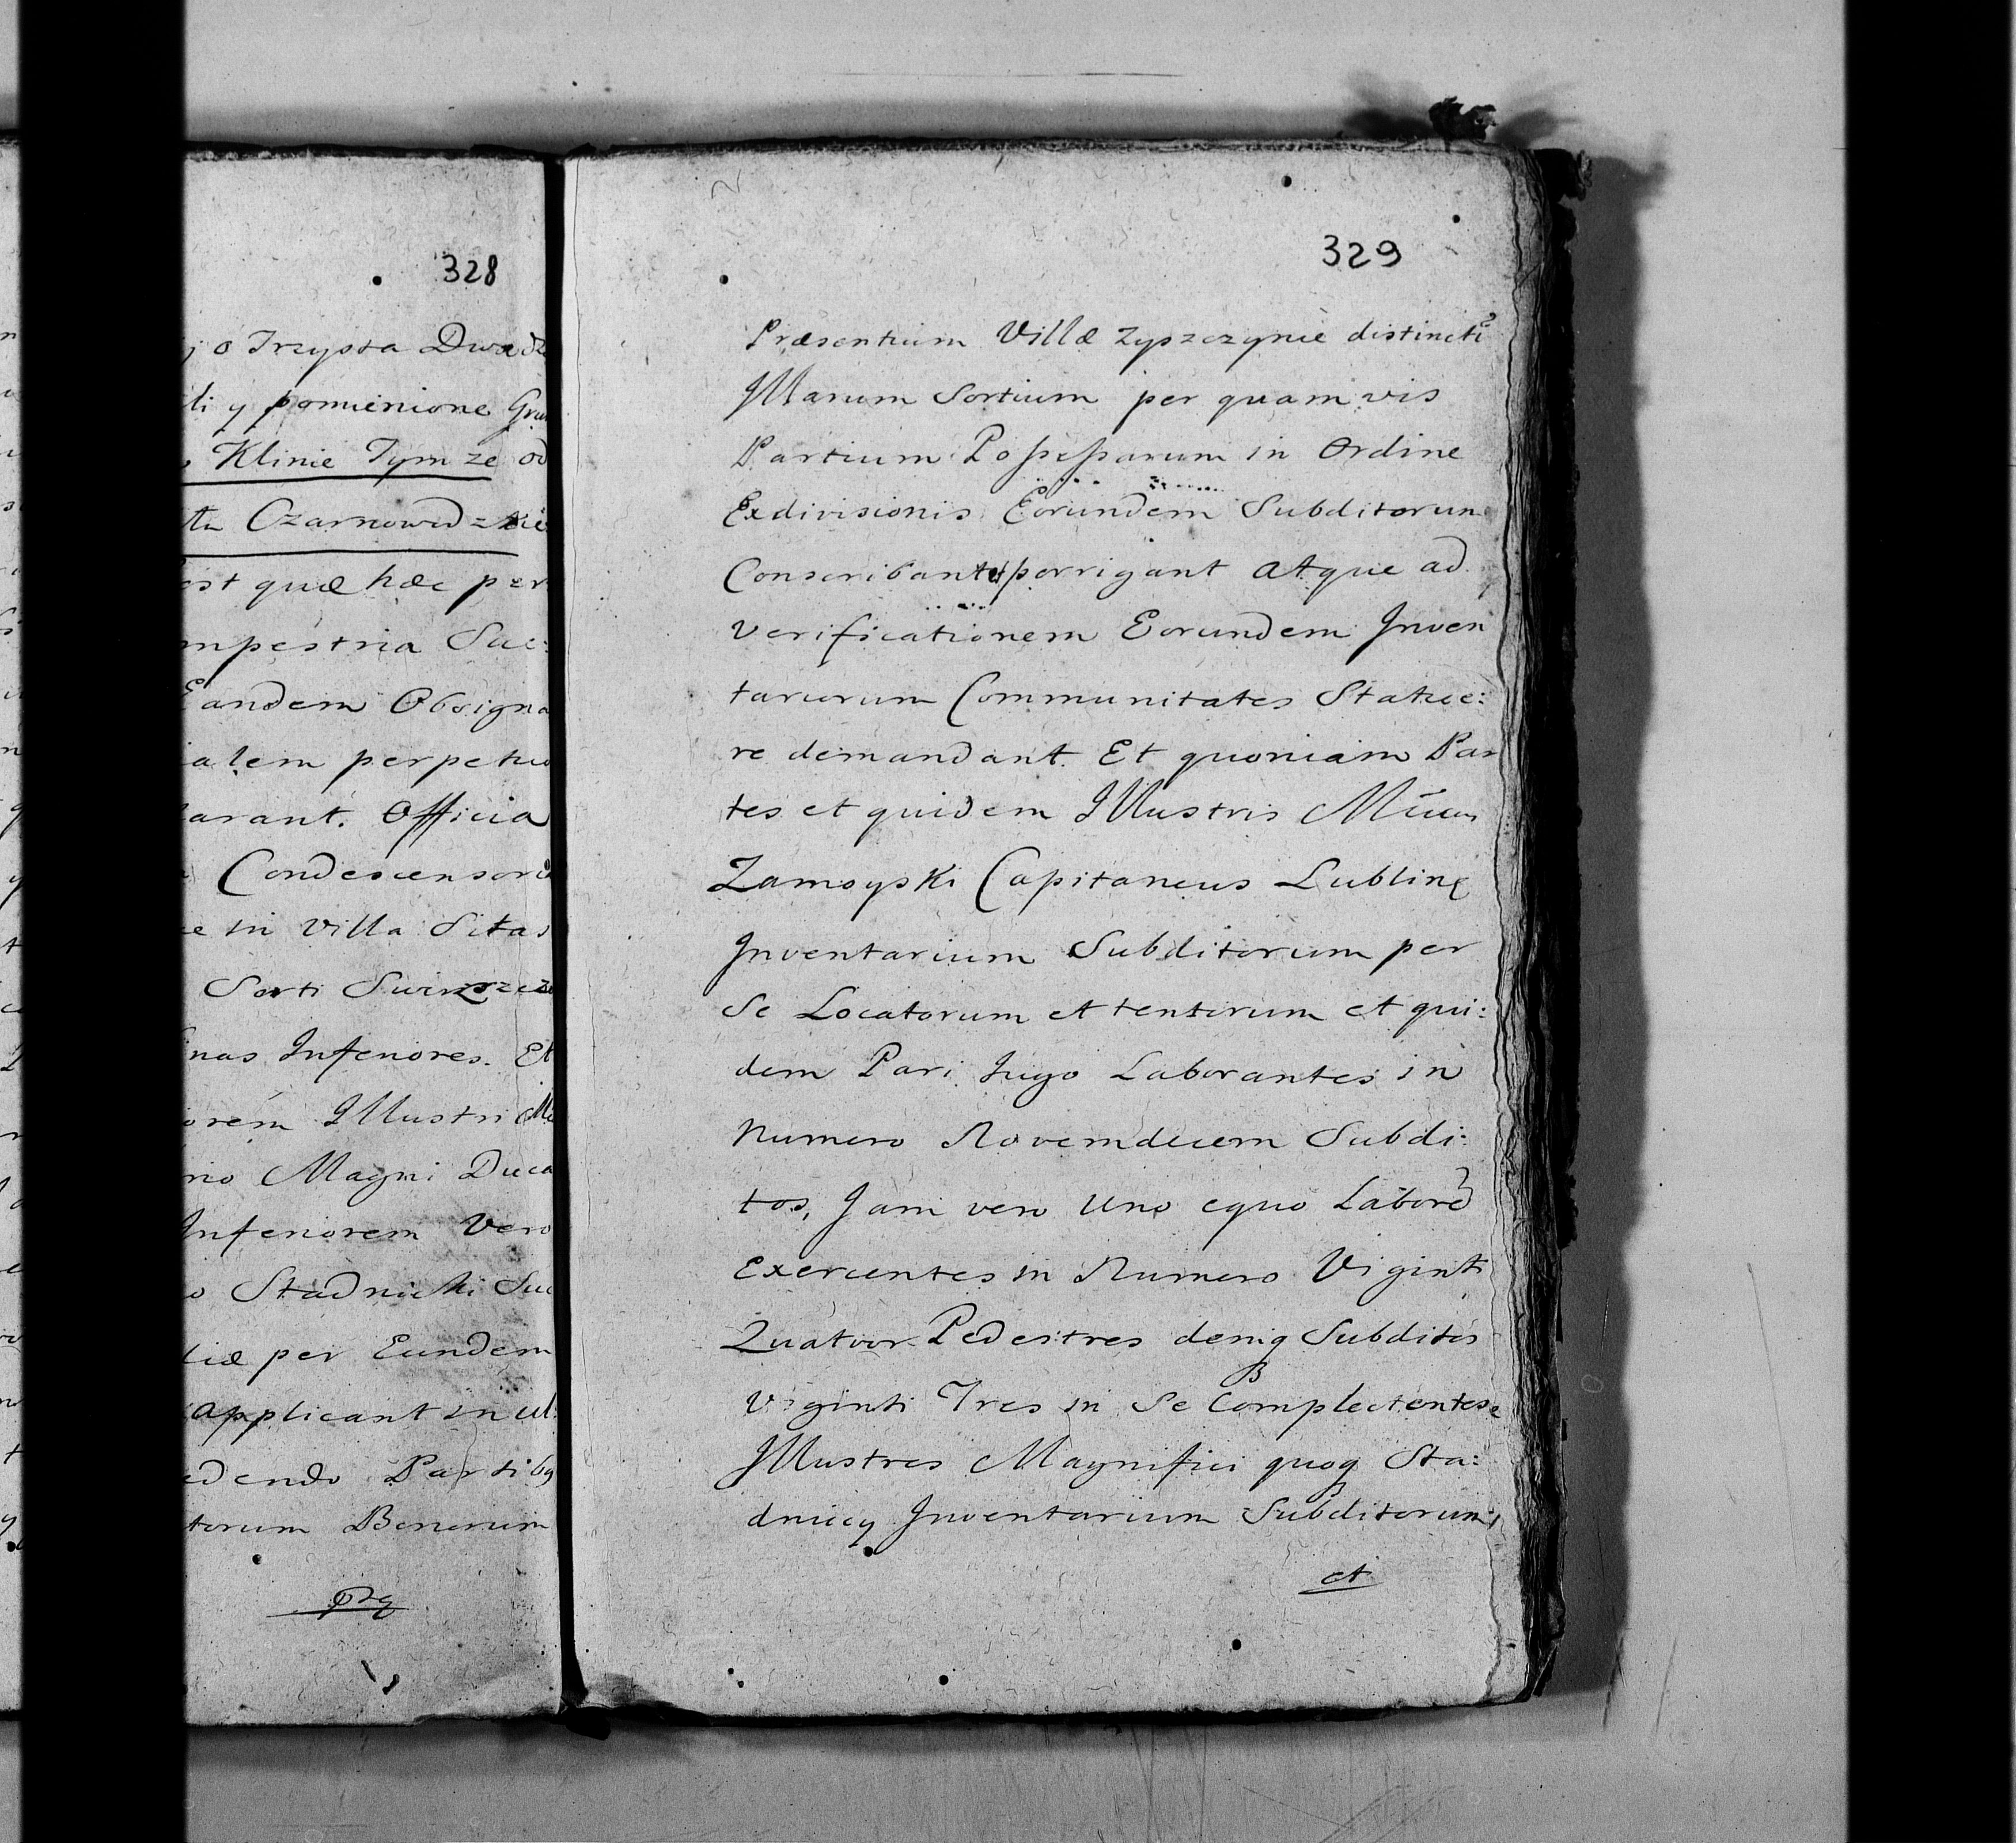 328
j o Trzysta Dwadz
li y pomienione Grun
Klinie Tym ze od
tu Czarnowodzkie
est quæ hæc per
mpestria Suc:
Eandem Obsigna
ialem perpetuo
arant. Officia
Condescensori
e in villa Sitas
Sorti
inas Inferiores. Et
orem Illustri Ma
rio Magni Duca
Inferiorem Vero
o Stadnicki Suc
liæ per Eundem
applicant in ul
edendo Partibq
torum Bonorum
Præ
329
Præsentium Villæ Zyszczynie distincti
Illarum Sortium per quam vis
Partium Possessarum in Ordine
Exdivisionis Eorundem Subditorum
Conscribant et porrigant atque ad
verificationem Eorundem Inven
tariorum Communitates Statue:
re demandant. Et quoniam Par
tes et quidem Illustris
Zamoyski Capitaneus Lublinę
Inventarium Subditorum per
Se Locatorum et tentorum et qui:
dem Pari Jugo Laborantes in
Numero Novemdecem Subdi:
tos, Jam vero Uno equo Labore
Exercentes in Numero Viginti
Quatuor Pedestres deniq Subditos
Viginti Tres in Se Complectentes
Illustres Magnifici quoq Sta:
dniccy Inventarium Subditorum
et